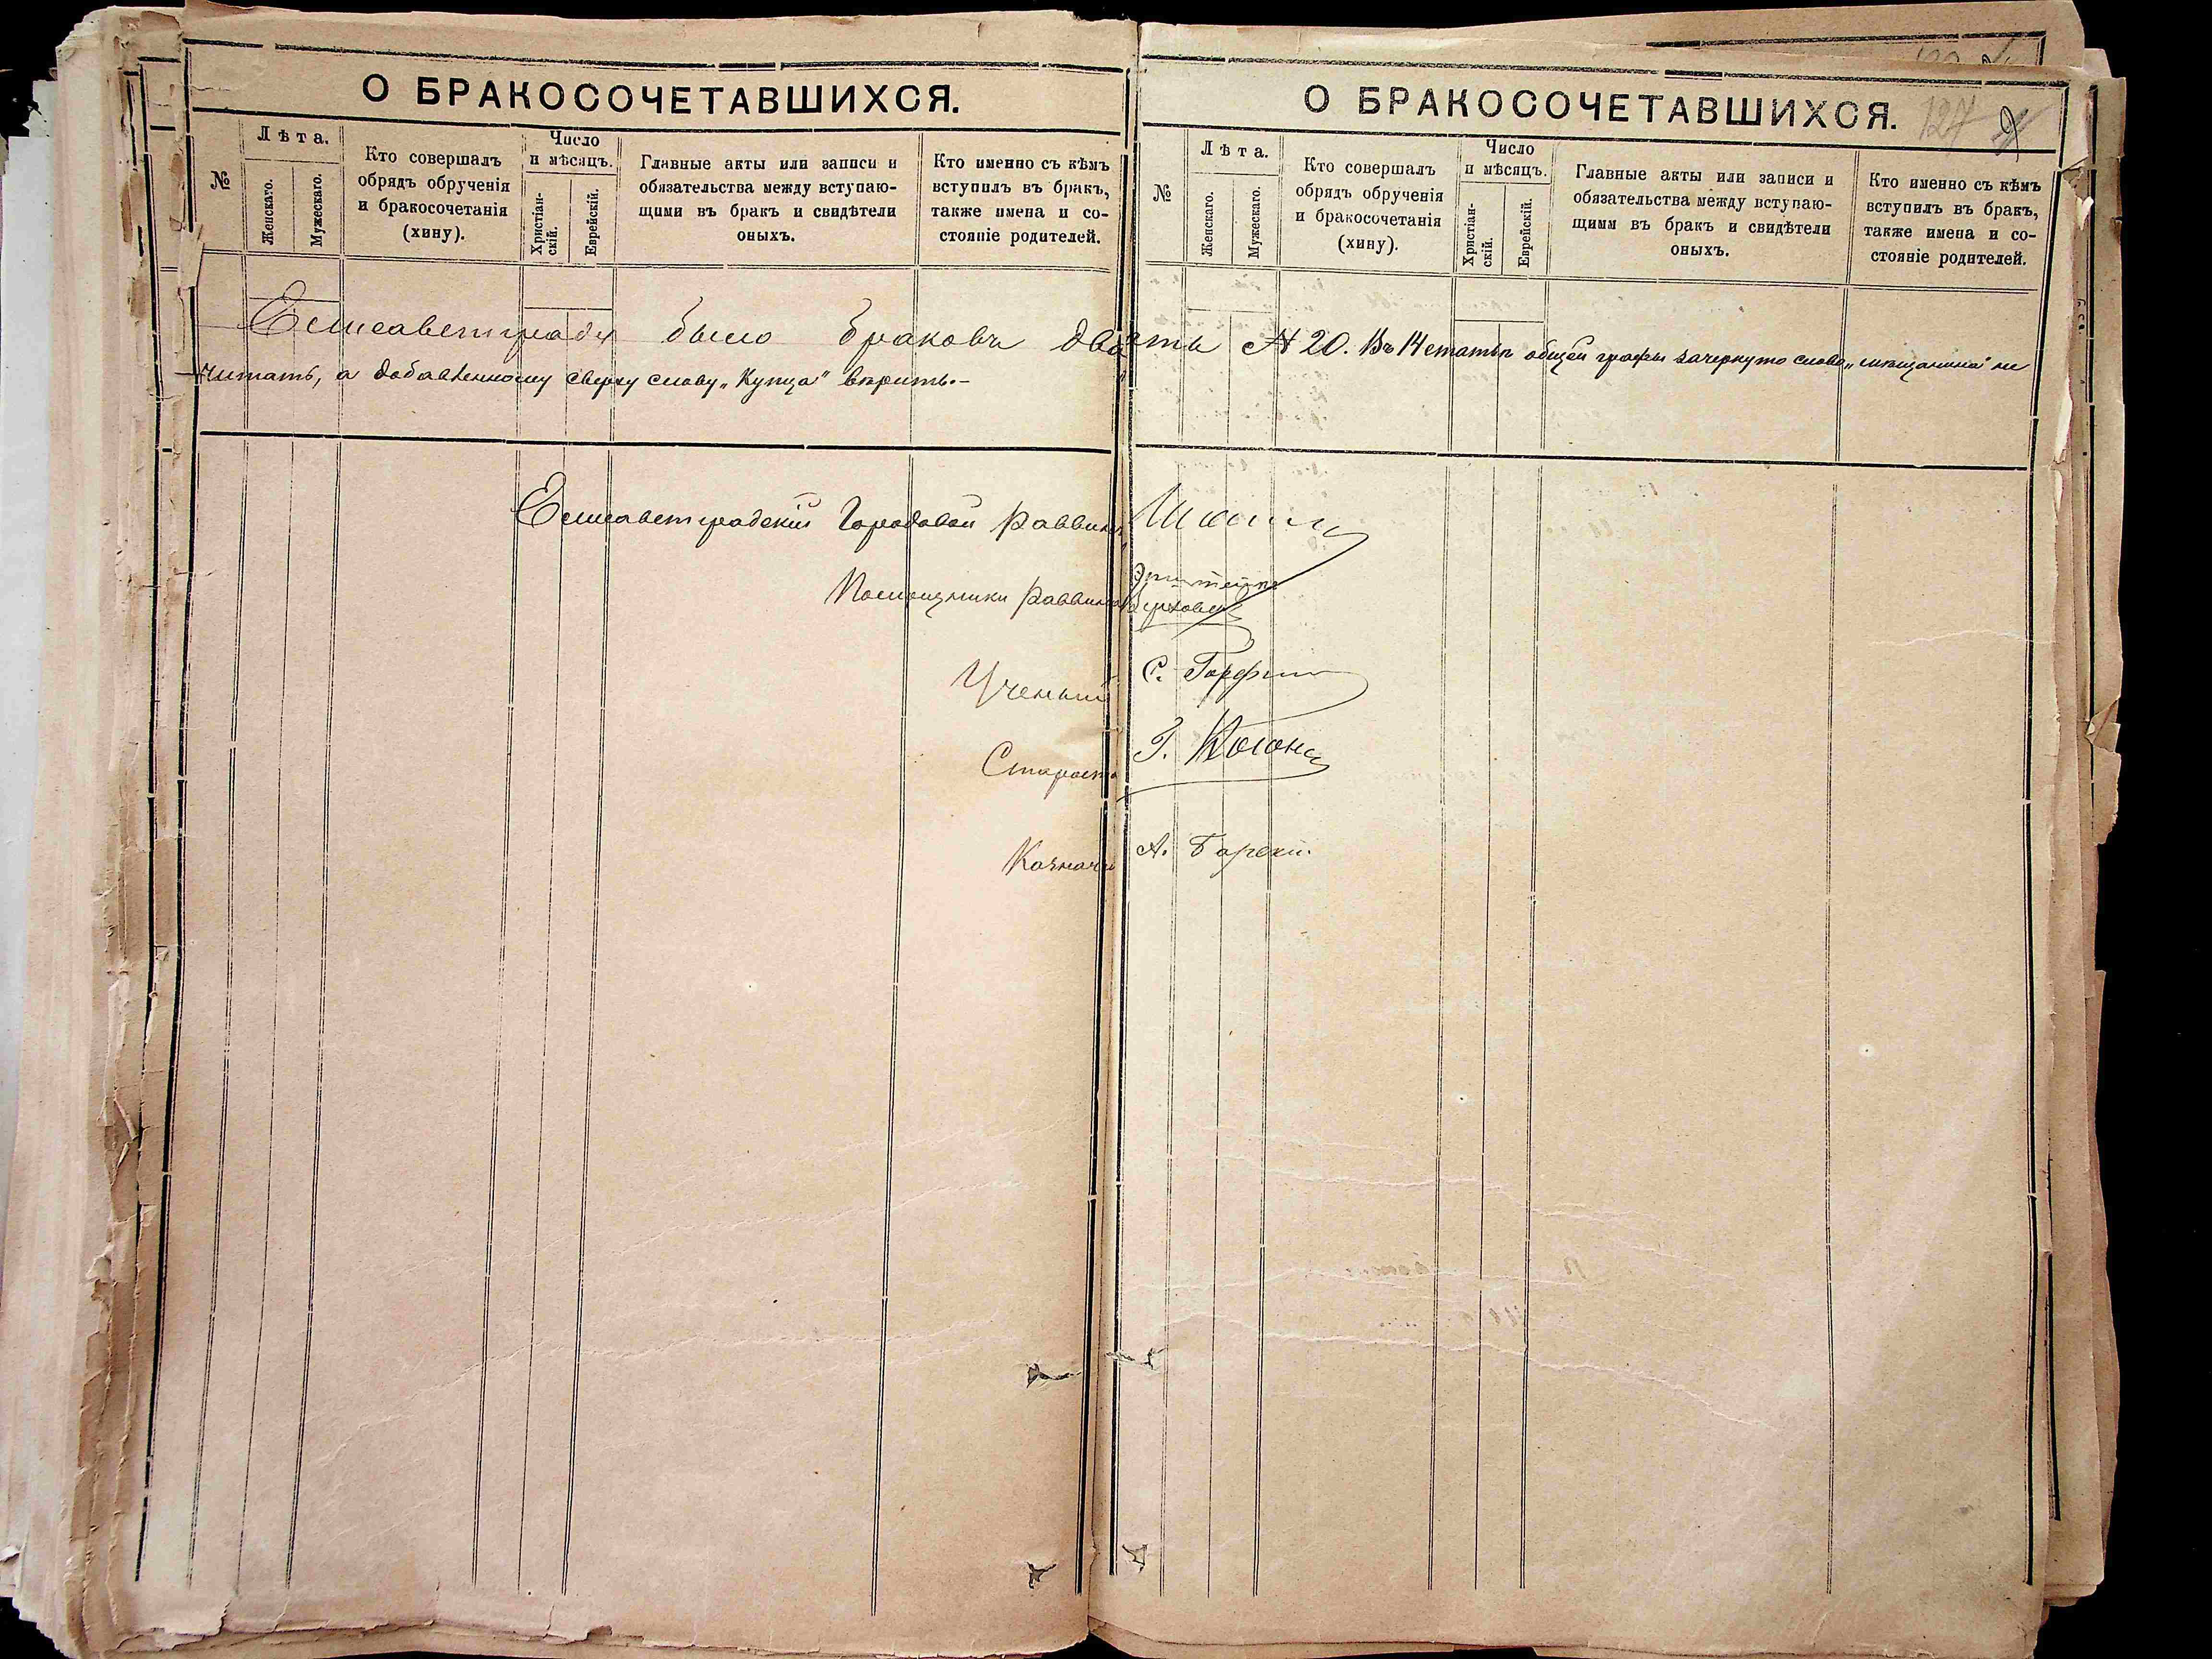 О БРАКОСОЧЕТАВШИХСЯ.
№
Лѣта.
Женскаго.
Мужескаго.
Кто совершалъ
обрядъ обрученія
и бракосочетанія
(хину).
Число
и мѣсяцъ.
Христіан-
скій.
Еврейскій.
Главные акты или записи и
обязательства между вступаю-
щими въ бракъ и свидѣтели
оныхъ.
Кто именно съ кѣмъ
вступилъ въ бракъ,
также имена и со-
стояніе родителей.
О БРАКОСОЧЕТАВШИХСЯ.
127
№
Лѣта.
Женскаго.
Мужескаго.
Кто совершалъ
обрядъ обрученія
и бракосочетанія
(хину).
Число
и мѣсяцъ.
Христіан-
скій.
Еврейскій.
Главные акты или записи и
обязательства между вступаю-
щими въ бракъ и свидѣтели
оныхъ.
Кто именно съ кѣмъ
вступилъ въ бракъ,
также имена и со-
стояніе родителей.
Елисаветградѣ было браковъ № 20. Въ 14 статьѣ общей графы зачеркуто слово „мѣщанина" не
читать, а добавленному сверху слову „Купца" вѣрить.-
Елисаветградскій Городовой Раввинъ
Помощники Раввина
Ученый С.
Староста Г. Когонъ
Казначей А.